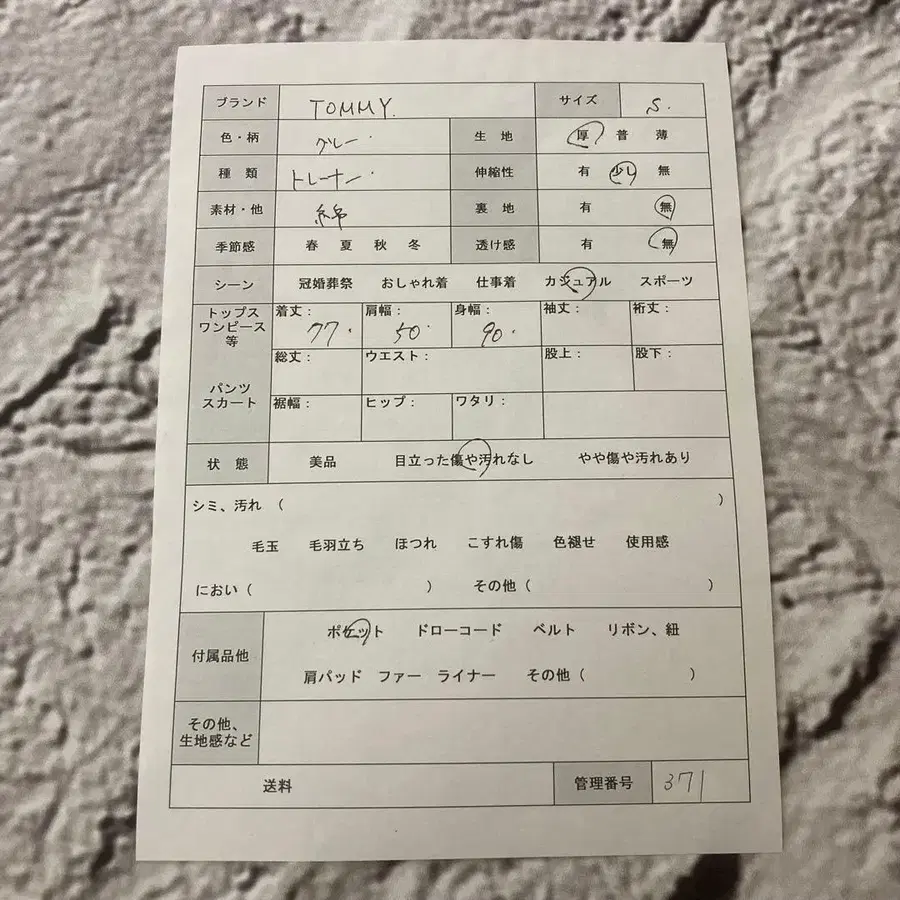 ブランド TOMMY. サイズ S.
色・柄 グレー 生地 厚 普 薄
種類 トレーナー 伸縮性 有 少し 無
素材・他 綿 裏地 有 無
季節感 春 夏 秋 冬 透け感 有 無
シーン 冠婚葬祭 おしゃれ着 仕事着 カジュアル スポーツ
トップス
ワンピース
等
着丈: 77. 肩幅: 50. 身幅: 90. 袖丈: 裄丈:
パンツ
スカート
総丈: ウエスト: 股上: 股下:
裾幅: ヒップ: ワタリ:
状態 美品 目立った傷や汚れなし やや傷や汚れあり
シミ、汚れ ( )
毛玉 毛羽立ち ほつれ こすれ傷 色褪せ 使用感
におい ( ) その他 ( )
付属品他 ポケット ドローコード ベルト リボン、紐
肩パッド ファー ライナー その他 ( )
その他、
生地感など
送料 管理番号 371